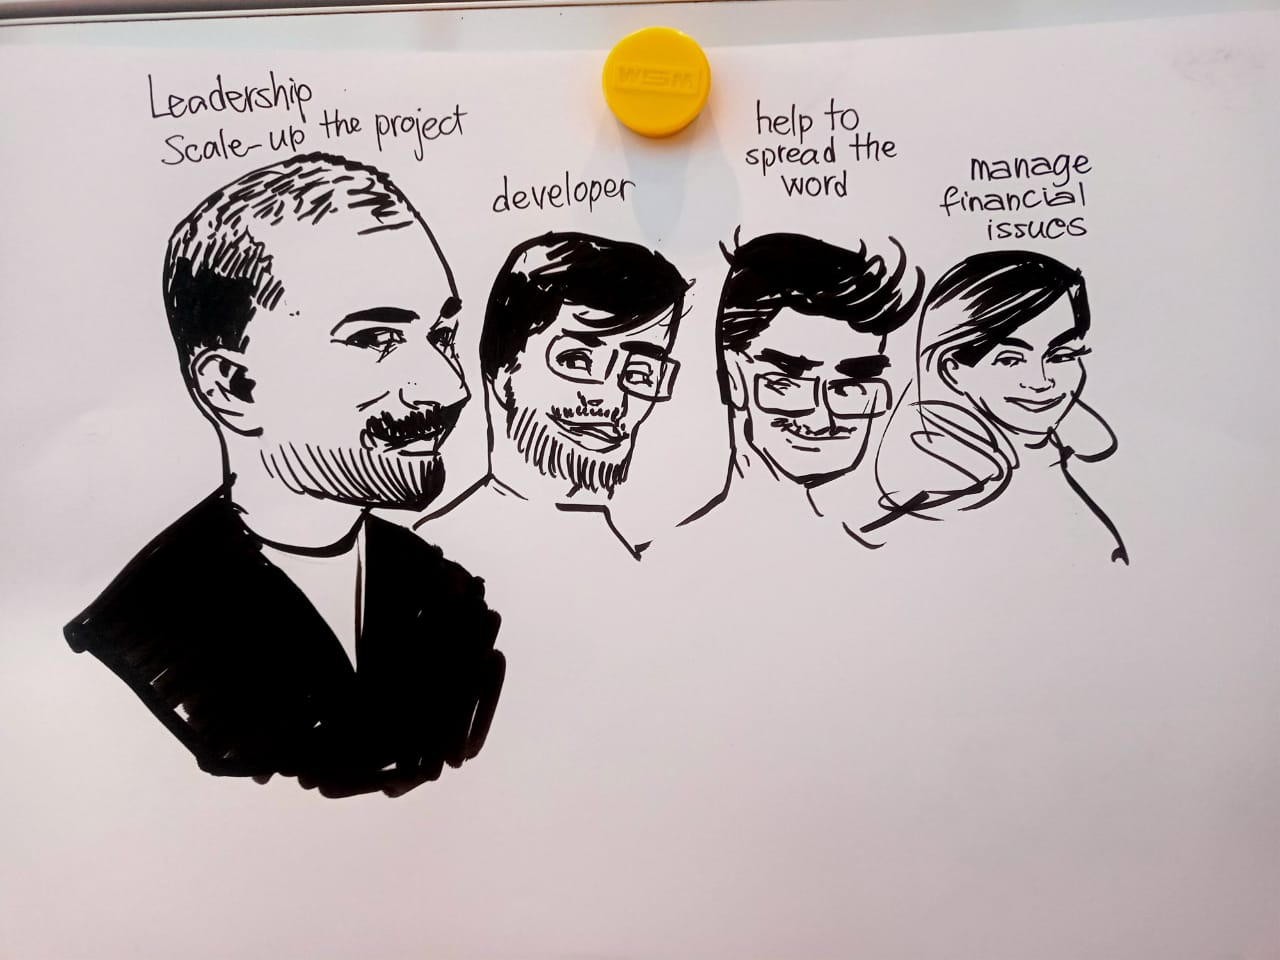 Leadership
Scale-up the project
developer
help to
spread the
word
manage
financial
issues
WSM